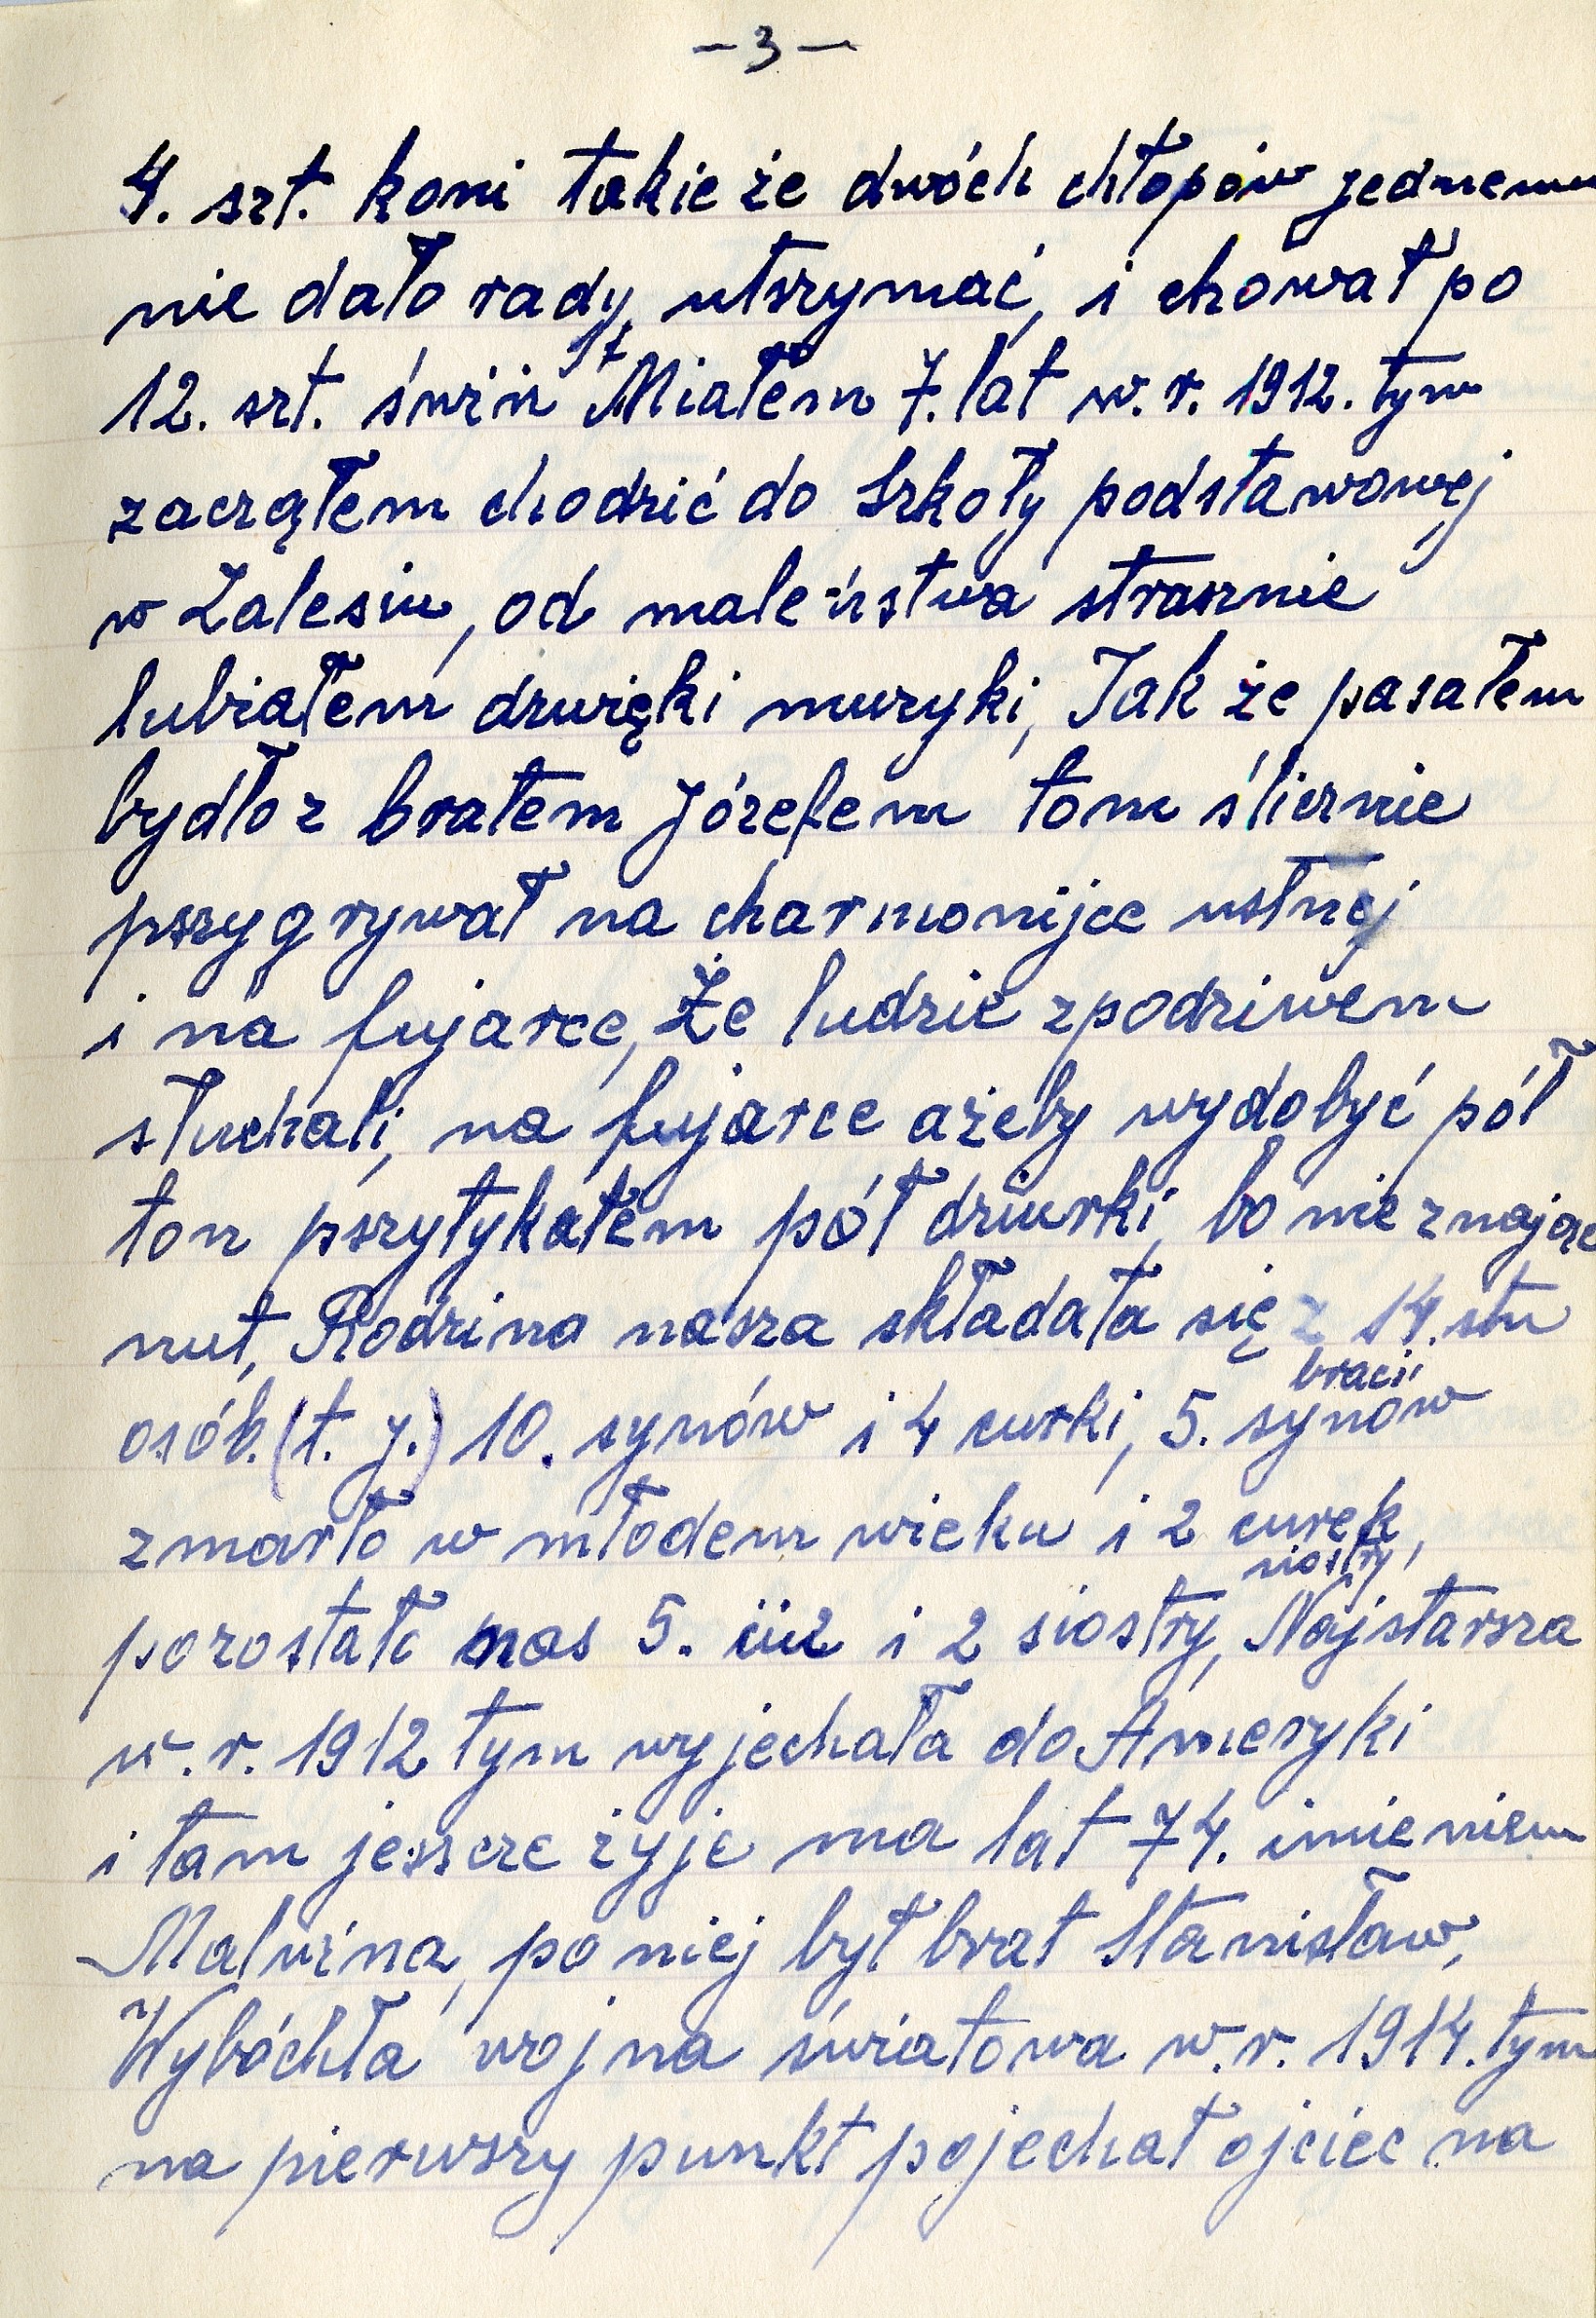 – 3 –
4. szt. koni takie że dwóch chłopów jednemu
nie dało rady, utszymać, i chował po
12. szt. świń Miałem 7. lat w. r. 1912. tym
zacząłem chodzić do Szkoły podstawowej
w Zalesiu, od maleństwa strasznie
lubiałem dzwięki muzyki, Tak że pasałem
bydło z bratem Józefem tom ślicznie
pszygrywał na charmonijce ustnej
i na fujarce, Że ludzie zpodziwem
słuchali, na fujarce ażeby wydobyć pół
ton pszytykałem pół dziurki, bo nie znając
nut, Rodzina nasza składała się z 14. stu
bracii
osób. (t. j.) 10. synów i 4 curki, 5. synów
zmarło w młodem wieku i 2 curek,
siostry,
pozostało nas 5. i 2 siostry, Najstarsza
w. r. 1912 tym wyjechała do Ameryki
i tam jeszcze żyje ma lat 74. imieniem
Malwina, po niej był brat Stanisław,
Wybóchła wojna światowa w. r. 1914. tym
na pierwszy punkt pojechał ojciec na